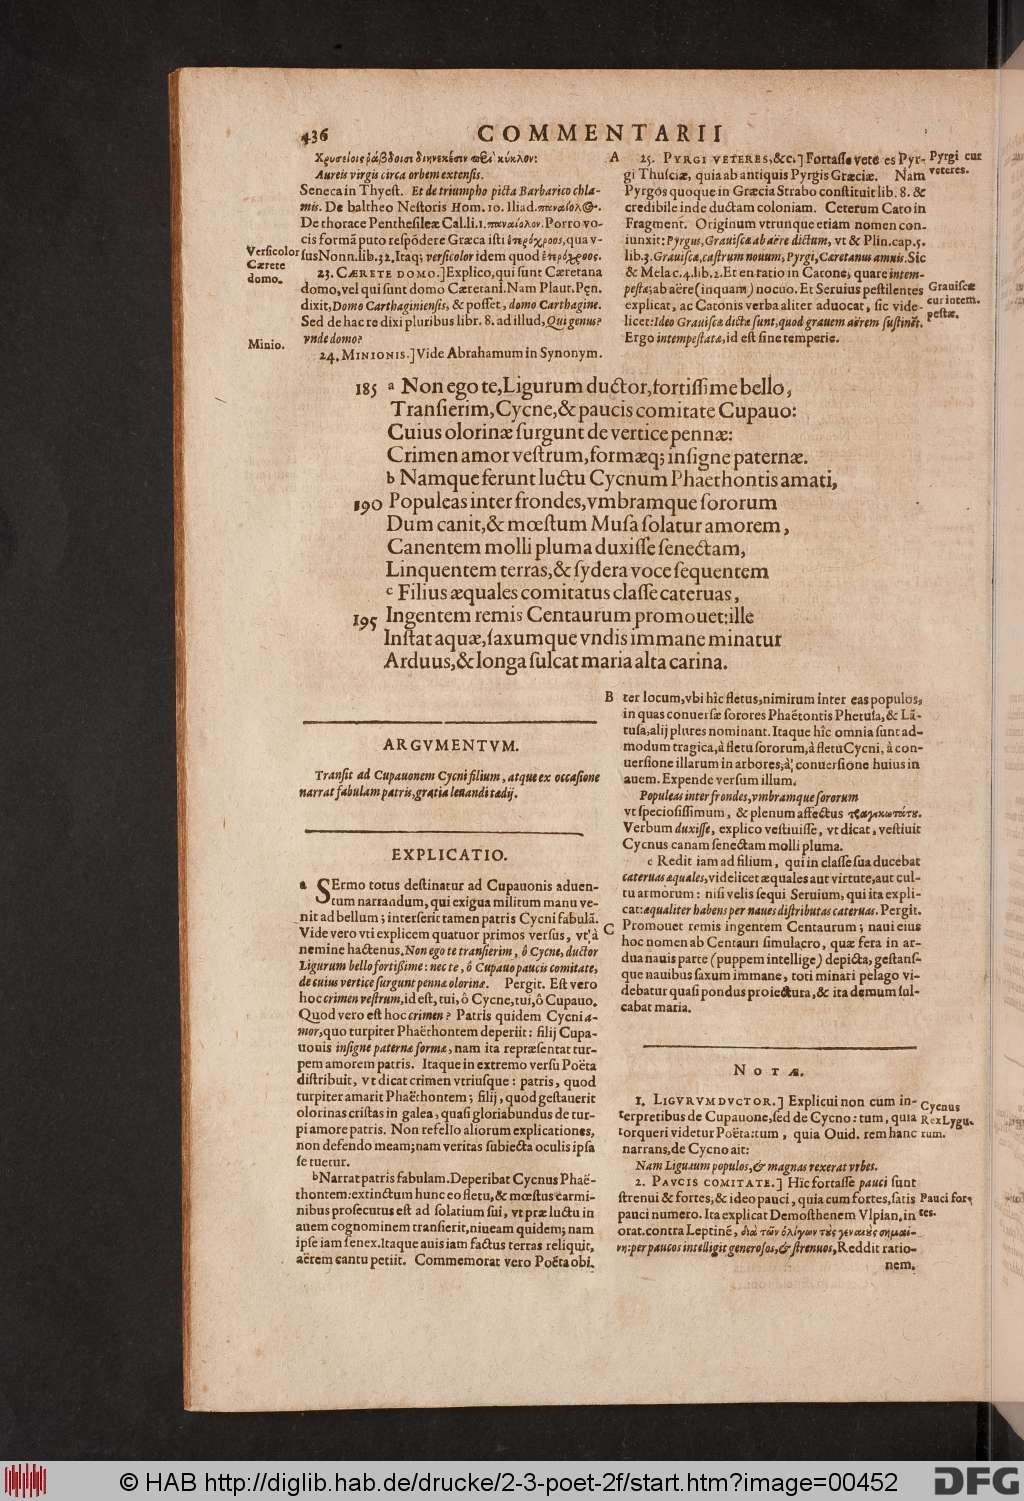 436
COMMENTARII
Χρυσείοις ῥάβδοισι διηνεκέσιν περὶ κύκλον:
Aureis virgis circa orbem extensis.
Seneca in Thyest. Et de triumpho picta Barbarico chla-
mis. De baltheo Nestoris Hom. 10. Iliad. παναίολος.
De thorace Penthesileæ Cal.li.1. παναίολον. Porro vo-
cis formã puto respõdere Græca isti ἑτερόχροος, qua v-
sus Nonn. lib. 32, Itaq; versicolor idem quod ἑτερόχροος.
23. CÆRETE DOMO.] Explico, qui sunt Cæretana
domo, vel qui sunt domo Cæretani. Nam Plaut. Pęn.
dixit, Domo Carthaginiensis, & posset, domo Carthagine.
Sed de hac re dixi pluribus libr. 8. ad illud, Qui genus?
vnde domo?
24. MINIONIS.] Vide Abrahamum in Synonym.
Versicolor
Cærete
domo.
Minio.
A
25. PYRGI VETERES, &c.] Fortasse vete es Pyr-
gi Thusciæ, quia ab antiquis Pyrgis Græciæ. Nam
Pyrgos quoque in Græcia Strabo constituit lib. 8. &
credibile inde ductam coloniam. Ceterum Cato in
Fragment. Originum vtrunque etiam nomen con-
iunxit: Pyrgus, Grauiscæ ab aëre dictum, vt & Plin. cap. 5.
lib. 3. Grauiscæ, castrum nouum, Pyrgi, Cæretanus amnis. Sic
& Mela c. 4. lib. 2. Et en ratio in Catone, quare intem-
pestæ; ab aëre (inquam) nocuo. Et Seruius pestilentes
explicat, ac Catonis verba aliter aduocat, sic vide-
licet: Ideo Grauiscæ dictæ sunt, quod grauem aërem sustinēt.
Ergo intempestatæ, id est sine temperie.
Pyrgi cur
veteres.
Grauiscæ
cur intem.
pestæ.
185 a Non ego te, Ligurum ductor, fortissime bello,
Transierim, Cycne, & paucis comitate Cupauo:
Cuius olorinæ surgunt de vertice pennæ:
Crimen amor vestrum, formæq; insigne paternæ.
b Namque ferunt luctu Cycnum Phaethontis amati,
190 Populeas inter frondes, vmbramque sororum
Dum canit, & mœstum Musa solatur amorem,
Canentem molli pluma duxisse senectam,
Linquentem terras, & sydera voce sequentem
c Filius æquales comitatus classe cateruas,
195 Ingentem remis Centaurum promouet: ille
Instat aquæ, saxumque vndis immane minatur
Arduus, & longa sulcat maria alta carina.
ARGVMENTVM.
Transit ad Cupauonem Cycni filium, atque ex occasione
narrat fabulam patris, gratia leuandi tædij.
EXPLICATIO.
a SErmo totus destinatur ad Cupauonis aduen-
tum narrandum, qui exigua militum manu ve-
nit ad bellum; interserit tamen patris Cycni fabulã.
Vide vero vti explicem quatuor primos versus, vt à
nemine hactenus. Non ego te transierim, ô Cycne, ductor
Ligurum bello fortißime: nec te, ô Cupauo paucis comitate,
de cuius vertice surgunt pennæ olorinæ. Pergit. Est vero
hoc crimen vestrum, id est, tui, ô Cycne, tui, ô Cupauo.
Quod vero est hoc crimen? Patris quidem Cycni a-
mor, quo turpiter Phaëthontem deperiit: filij Cupa-
uonis insigne paternæ formæ, nam ita repræsentat tur-
pem amorem patris. Itaque in extremo versu Poëta
distribuit, vt dicat crimen vtriusque: patris, quod
turpiter amarit Phaëthontem; filij, quod gestauerit
olorinas cristas in galea, quasi gloriabundus de tur-
pi amore patris. Non refello aliorum explicationes,
non defendo meam; nam veritas subiecta oculis ipsa
se tuetur.
b Narrat patris fabulam. Deperibat Cycnus Phaë-
thontem: extinctum hunc eo fletu, & mœstus carmi-
nibus prosecutus est ad solatium sui, vt præ luctu in
auem cognominem transierit, niueam quidem; nam
ipse iam senex. Itaque auis iam factus terras reliquit,
aërem cantu petiit. Commemorat vero Poëta obi.
B
ter locum, vbi hîc fletus, nimirum inter eas populos,
in quas conuersæ sorores Phaëtontis Phetusa, & Lã-
tusa, alij plures nominant. Itaque hîc omnia sunt ad-
modum tragica, à fletu sororum, à fletu Cycni, à con-
uersione illarum in arbores, à conuersione huius in
auem. Expende versum illum.
Populeas inter frondes, vmbramque sororum
vt speciosissimum, & plenum affectus τραγικωτάτου.
Verbum duxisse, explico vestiuisse, vt dicat, vestiuit
Cycnus canam senectam molli pluma.
c Redit iam ad filium, qui in classe sua ducebat
cateruas æquales, videlicet æquales aut virtute, aut cul-
tu armorum: nisi velis sequi Seruium, qui ita expli-
cat: æqualiter habens per naues distributas cateruas. Pergit.
C
Promouet remis ingentem Centaurum; naui eius
hoc nomen ab Centauri simulacro, quæ fera in ar-
dua nauis parte (puppem intellige) depicta, gestans-
que nauibus saxum immane, toti minari pelago vi-
debatur quasi pondus proiectura, & ita demum sul-
cabat maria.
NOTÆ.
1. LIGVRVM DVCTOR.] Explicui non cum in-
terpretibus de Cupauone, sed de Cycno: tum, quia
torqueri videtur Poëta: tum, quia Ouid. rem hanc
narrans, de Cycno ait:
Nam Liguum populos, & magnas rexerat vrbes.
2. PAVCIS COMITATE.] Hic fortasse pauci sunt
strenui & fortes, & ideo pauci, quia cum fortes, satis
pauci numero. Ita explicat Demosthenem Vlpian. in
orat. contra Leptinē, διὰ τῶν ὀλίγων τοὺς γεναίους σημαί-
νη: per paucos intelligit generosos, & strenuos, Reddit ratio-
nem.
Cycnus
Rex Lygu-
rum.
Pauci for-
tes.
© HAB http://diglib.hab.de/drucke/2-3-poet-2f/start.htm?image=00452
DFG